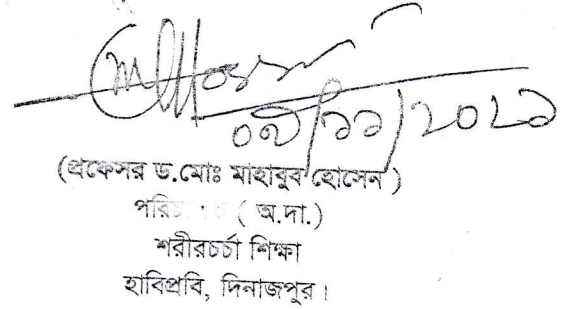 ০৭/১১/২০২১
(প্রফেসর ড.মোঃ মাহাবুব হোসেন )
( অ.দা.)
শরীরচর্চা শিক্ষা
হাবিপ্রবি, দিনাজপুর।